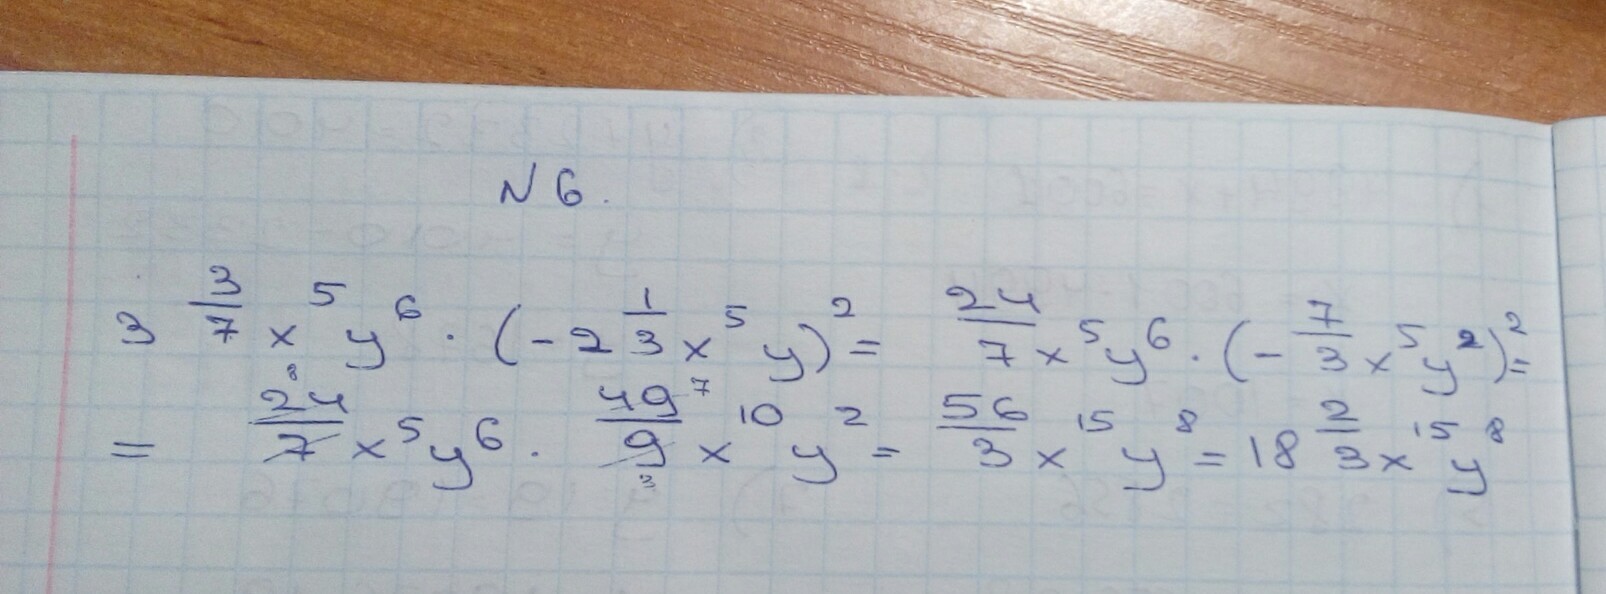 N 6.
3 3/7 x⁵y⁶ · (-2 1/3 x⁵y)² = 24/7 x⁵y⁶ · (-7/3 x⁵y²)² =
= 24⁸/7 x⁵y⁶ · 49⁷/9₃ x¹⁰y² = 56/3 x¹⁵y⁸ = 18 2/3 x¹⁵y⁸